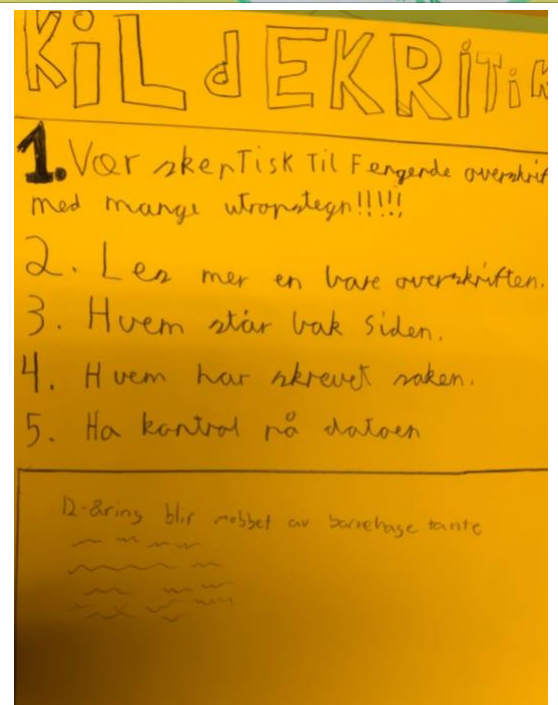 KiLdEKRiTiK
1. Vær skeptisk til Fengende overskrif
med mange utropstegn!!!!!
2. Les mer en bare overskriften.
3. Hvem står bak siden.
4. Hvem har skrevet saken.
5. Ha kontrol på datoen
12-åring blir mobbet av barnehage tante